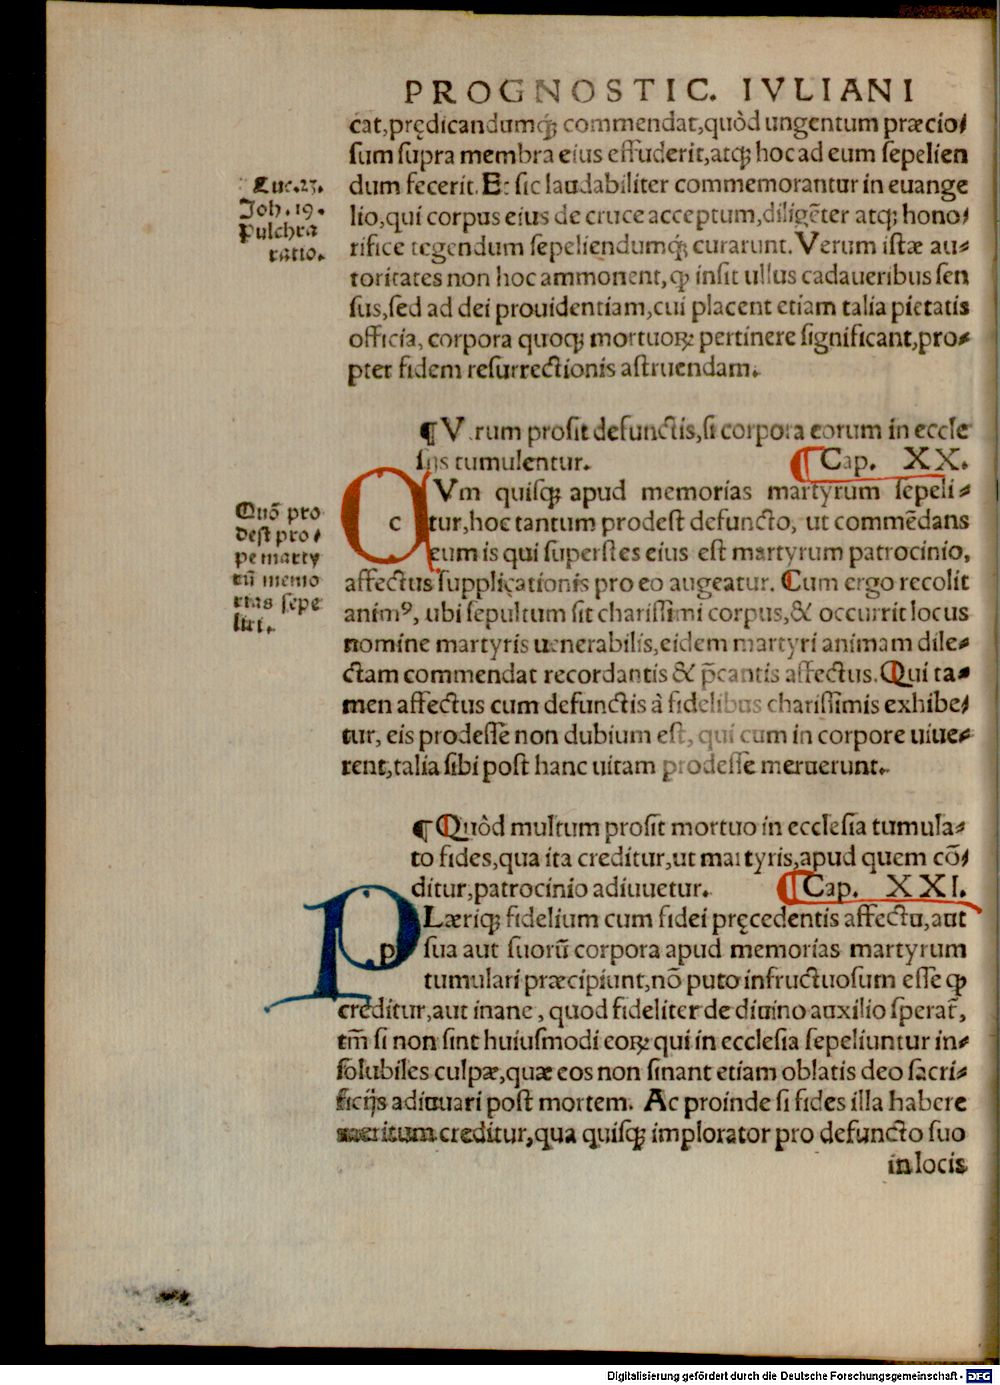 PROGNOSTIC. IVLIANI
cat,prędicandumq; commendat,quòd ungentum præcio/
ſum ſupra membra eius effuderit,atq; hoc ad eum ſepelien
dum fecerit. Et ſic laudabiliter commemorantur in euange
lio,qui corpus eius de cruce acceptum,diligẽter atq; hono/
rifice tegendum ſepeliendumq́; curarunt. Verum iſtæ au-
toritates non hoc ammonent,ꝙ inſit ullus cadaueribus ſen
ſus,ſed ad dei prouidentiam,cui placent etiam talia pietatis
officia, corpora quoq; mortuoꝝ pertinere ſignificant,pro-
pter fidem reſurrectionis aſtruendam.
Luc.23.
Joh.19.
Pulchra
ratio.
¶ Vtrum proſit defunctis,ſi corpora eorum in eccle
ſijs tumulentur.
Cap. XX.
c
Vm quiſq; apud memorias martyrum ſepeli-
tur,hoc tantum prodeſt defuncto, ut commẽdans
eum is qui ſuperſtes eius eſt martyrum patrocinio,
affectus ſupplicationis pro eo augeatur. Cum ergo recolit
animꝰ, ubi ſepultum ſit chariſſimi corpus,& occurrit locus
nomine martyris uenerabilis,eidem martyri animam dile-
ctam commendat recordantis & p̃cantis affectus. Qui ta-
men affectus cum defunctis à fidelibus chariſſimis exhibe/
tur, eis prodeſſe non dubium eſt, qui cum in corpore uiue-
rent,talia ſibi poſt hanc uitam prodeſſe meruerunt.
Quõ pro
deſt pro/
pe marty
rũ memo
rias ſepe
liri.
¶ Quòd multum proſit mortuo in eccleſia tumula-
to fides,qua ita creditur,ut martyris,apud quem cõ/
ditur,patrocinio adiuuetur.
Cap. XXI.
p
Læriq; fidelium cum fidei pręcedentis affectu,aut
ſua aut ſuorũ corpora apud memorias martyrum
tumulari præcipiunt,nõ puto infructuoſum eſſe ꝙ
creditur,aut inane, quod fideliter de diuino auxilio ſperat̃,
tm̃ ſi non ſint huiuſmodi eoꝝ qui in eccleſia ſepeliuntur in-
ſolubiles culpæ,quæ eos non ſinant etiam oblatis deo ſacri-
ficijs adiuuari poſt mortem. Ac proinde ſi fides illa habere
meritum creditur,qua quiſq; implorator pro defuncto ſuo
in locis
Digitalisierung gefördert durch die Deutsche Forschungsgemeinschaft - DFG